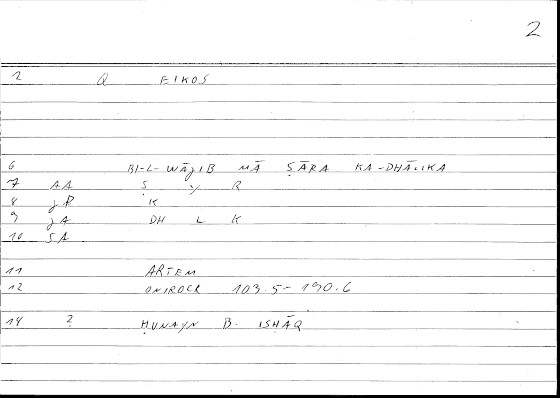 2
2 Q EIKOS
6 BI-L-WĀJIB MĀ ṢĀRA KA-DHĀLIKA
7 AA Ṣ Y R
8 JP K
9 JA DH L K
10 SA
11 ARTEM
12 ONIROCR 103.5-190.6
14 ? ḤUNAYN B. ISḤĀQ